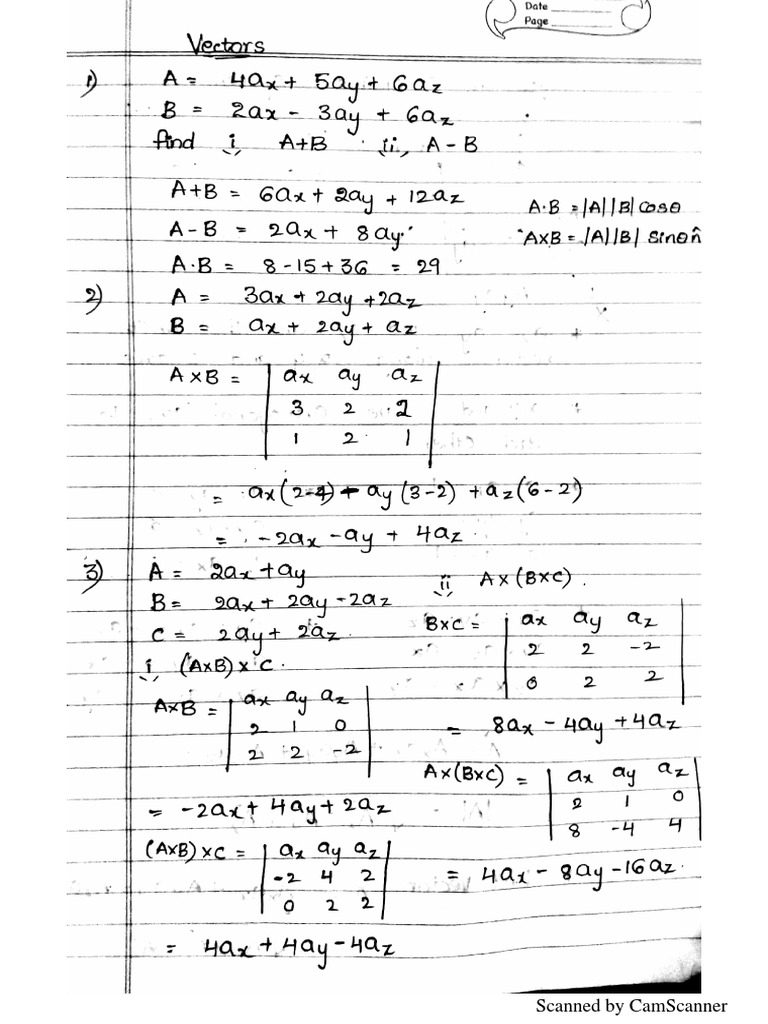 Date
Page
Vectors
1) A = 4ax + 5ay + 6az
B = 2ax - 3ay + 6az
find i, A+B ii, A-B
A+B = 6ax + 2ay + 12az
A-B = 2ax + 8ay
A·B = 8-15+36 = 29
A·B = |A||B| cosθ
A×B = |A||B| sinθ n̂
2) A = 3ax + 2ay + 2az
B = ax + 2ay + az
A×B = | ax ay az |
| 3 2 2 |
| 1 2 1 |
= ax(2-4) - ay(3-2) + az(6-2)
= -2ax - ay + 4az
3) A = 2ax + ay
B = 2ax + 2ay - 2az
C = 2ay + 2az
i, (A×B) × C.
A×B = | ax ay az |
| 2 1 0 |
| 2 2 -2 |
= -2ax + 4ay + 2az
(A×B)×C = | ax ay az |
| -2 4 2 |
| 0 2 2 |
= 4ax + 4ay - 4az
ii, A×(B×C).
B×C = | ax ay az |
| 2 2 -2 |
| 0 2 2 |
= 8ax - 4ay + 4az
A×(B×C) = | ax ay az |
| 2 1 0 |
| 8 -4 4 |
= 4ax - 8ay - 16az.
Scanned by CamScanner